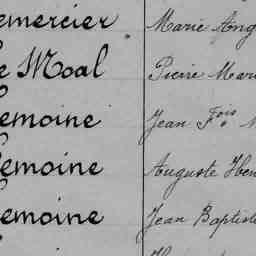 Lemercier Marie Ang
Le Moal Pierre Mari
Lemoine Jean Fois M
Lemoine Auguste Hen
Lemoine Jean Baptist